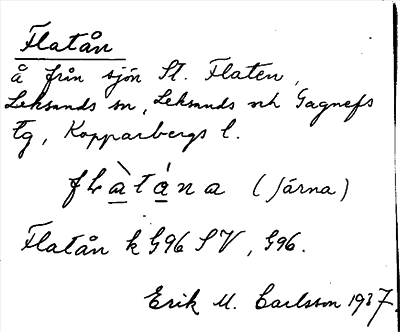 Flatån
å från sjön St. Flaten,
Leksands sn, Leksands och Gagnefs
tg, Kopparbergs l.
fLàtána (Järna)
Flatån k G96 SV, G96.
Erik M. Carlsson 1937.